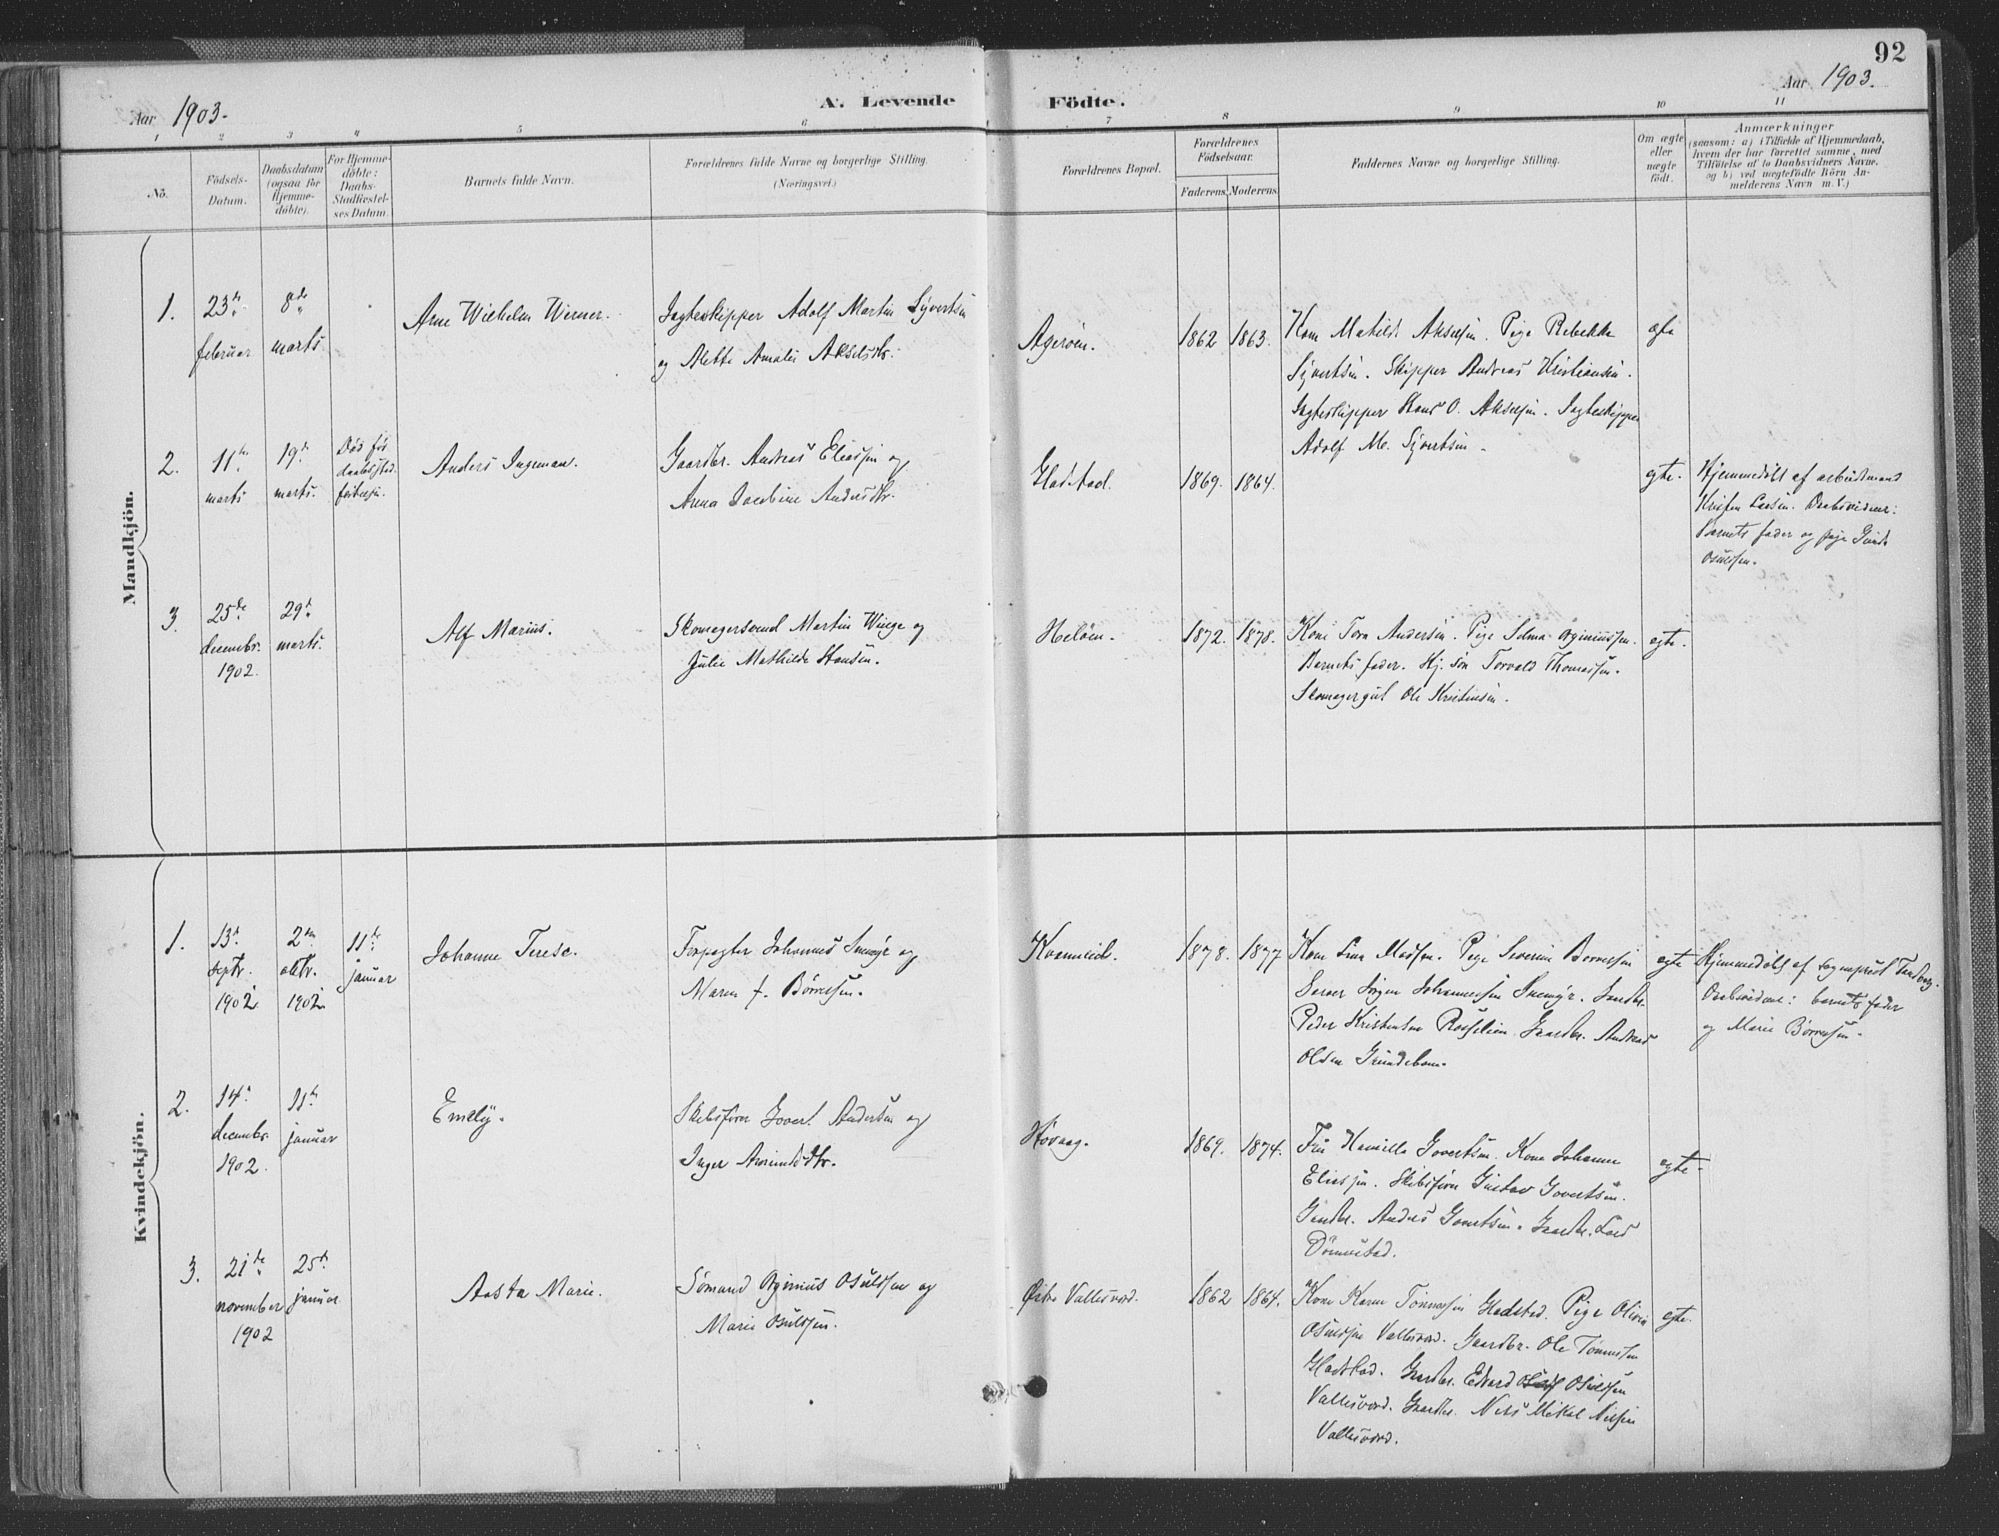 92
Aar 1903.
A. Levende Födte.
Aar 1903.
1 2 3 4 5 6 7 8 9 10 11
No.
Födsels-
Datum.
Daabsdatum
(ogsaa for
Hjemme-
döbte).
For Hjemme-
döbte:
Daabs-
Stadfæstel-
ses Datum.
Barnets fulde Navn.
Forældrenes fulde Navne og borgerlige Stilling.
(Næringsvei.)
Forældrenes Bopæl.
Forældrenes
Födselsaar.
Faderens. Moderens.
Faddernes Navne og borgerlige Stilling.
Om ægte
eller
uægte
födt.
Anmærkninger
(saasom: a) i Tilfælde af Hjemmedaab,
hvem der har forrettet samme, med
Tilföielse af to Daabsvidners Navne,
og b) ved uægtefödte Börn An-
melderens Navn m. V.)
Mandkjön.
1.
23de
februar
8de
marts
Arne Wilhelm Werner.
Jagteskipper Adolf Martin Syvertsen
og Alette Amalie Akselsdtr.
Agerøen.
1862 1863.
Kone Mathild. Akselsen. Pige Rebekka
Syvertsen. Skipper Andreas Kristiansen.
Jagteskipper Hans O. Akselsen. Jagteskipper
Adolf M. Syvertsen.
egte
2.
11te
marts
19de
marts.
Død før
Anders Ingeman.
Gaardbr. Andreas Eliassen og
Anna Jacobine Andersdtr.
Gladstad.
1869. 1864.
egte.
Hjemmedøbt af arbeidsmand
Larsen. Daabsvidner:
Barnets fader og pige
Osuldsen.
3.
25de
decembr.
1902.
29de
marts.
Alf Marius.
Skomagersvend Martin Winge og
Julie Mathilde Hansen.
Heløen.
1872. 1878.
Kone Tora Andersen. Pige Selma Orginiussen.
Barnets fader. Hj. søn Torvald Thomassen.
Skomagergut Ole Kristensen.
egte.
Kvindekjön.
1.
13de
septr.
1902.
2den
oktr.
1902.
11te
januar
Johanne Terese.
Forpagter Johannes Snemyr og
Maren J. Børresen.
1878. 1877
Kone Lina Madsen. Pige Severine Børresen
Johannessen Snemyr. Gaardbr.
Peder Kristensen Rosselien. Gaardbr. Andreas
Olsen
egte
Hjemmedøbt af sogneprest
Daabsvidner: barnets fader
og Marie Børresen.
2.
14de
decembr.
1902.
11te
januar
Emely.
Skibsfører Govert Andersen og
Inger
Høvaag.
1869. 1874.
Fru Kamilla Govertsen. Kone Johanne
Eliassen. Skibsfører Gustav Govertsen.
Gaardbr. Anders Govertsen. Gaardbr. Lars
Dønnestad.
egte.
3.
21de
november
1902
25de
januar
Aasta Marie.
Sømand Orginius Osuldsen og
Marie Osuldsen.
Østre Vallesverd.
1862 1864.
Kone Karen Tønnessen Gladstad. Pige Olivia
Osuldsen Vallesverd. Gaardbr. Ole Tønnessen
Gladstad. Gaardbr. Edvard Osuldsen
Vallesverd. Gaardbr. Nils Mikal Nilsen
Vallesverd.
egte.